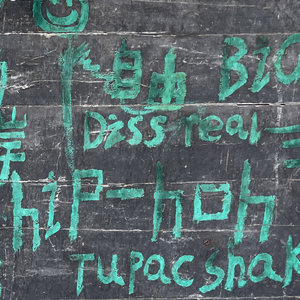 自由 BIG
Diss-real
hip-hoh
TupacshaK